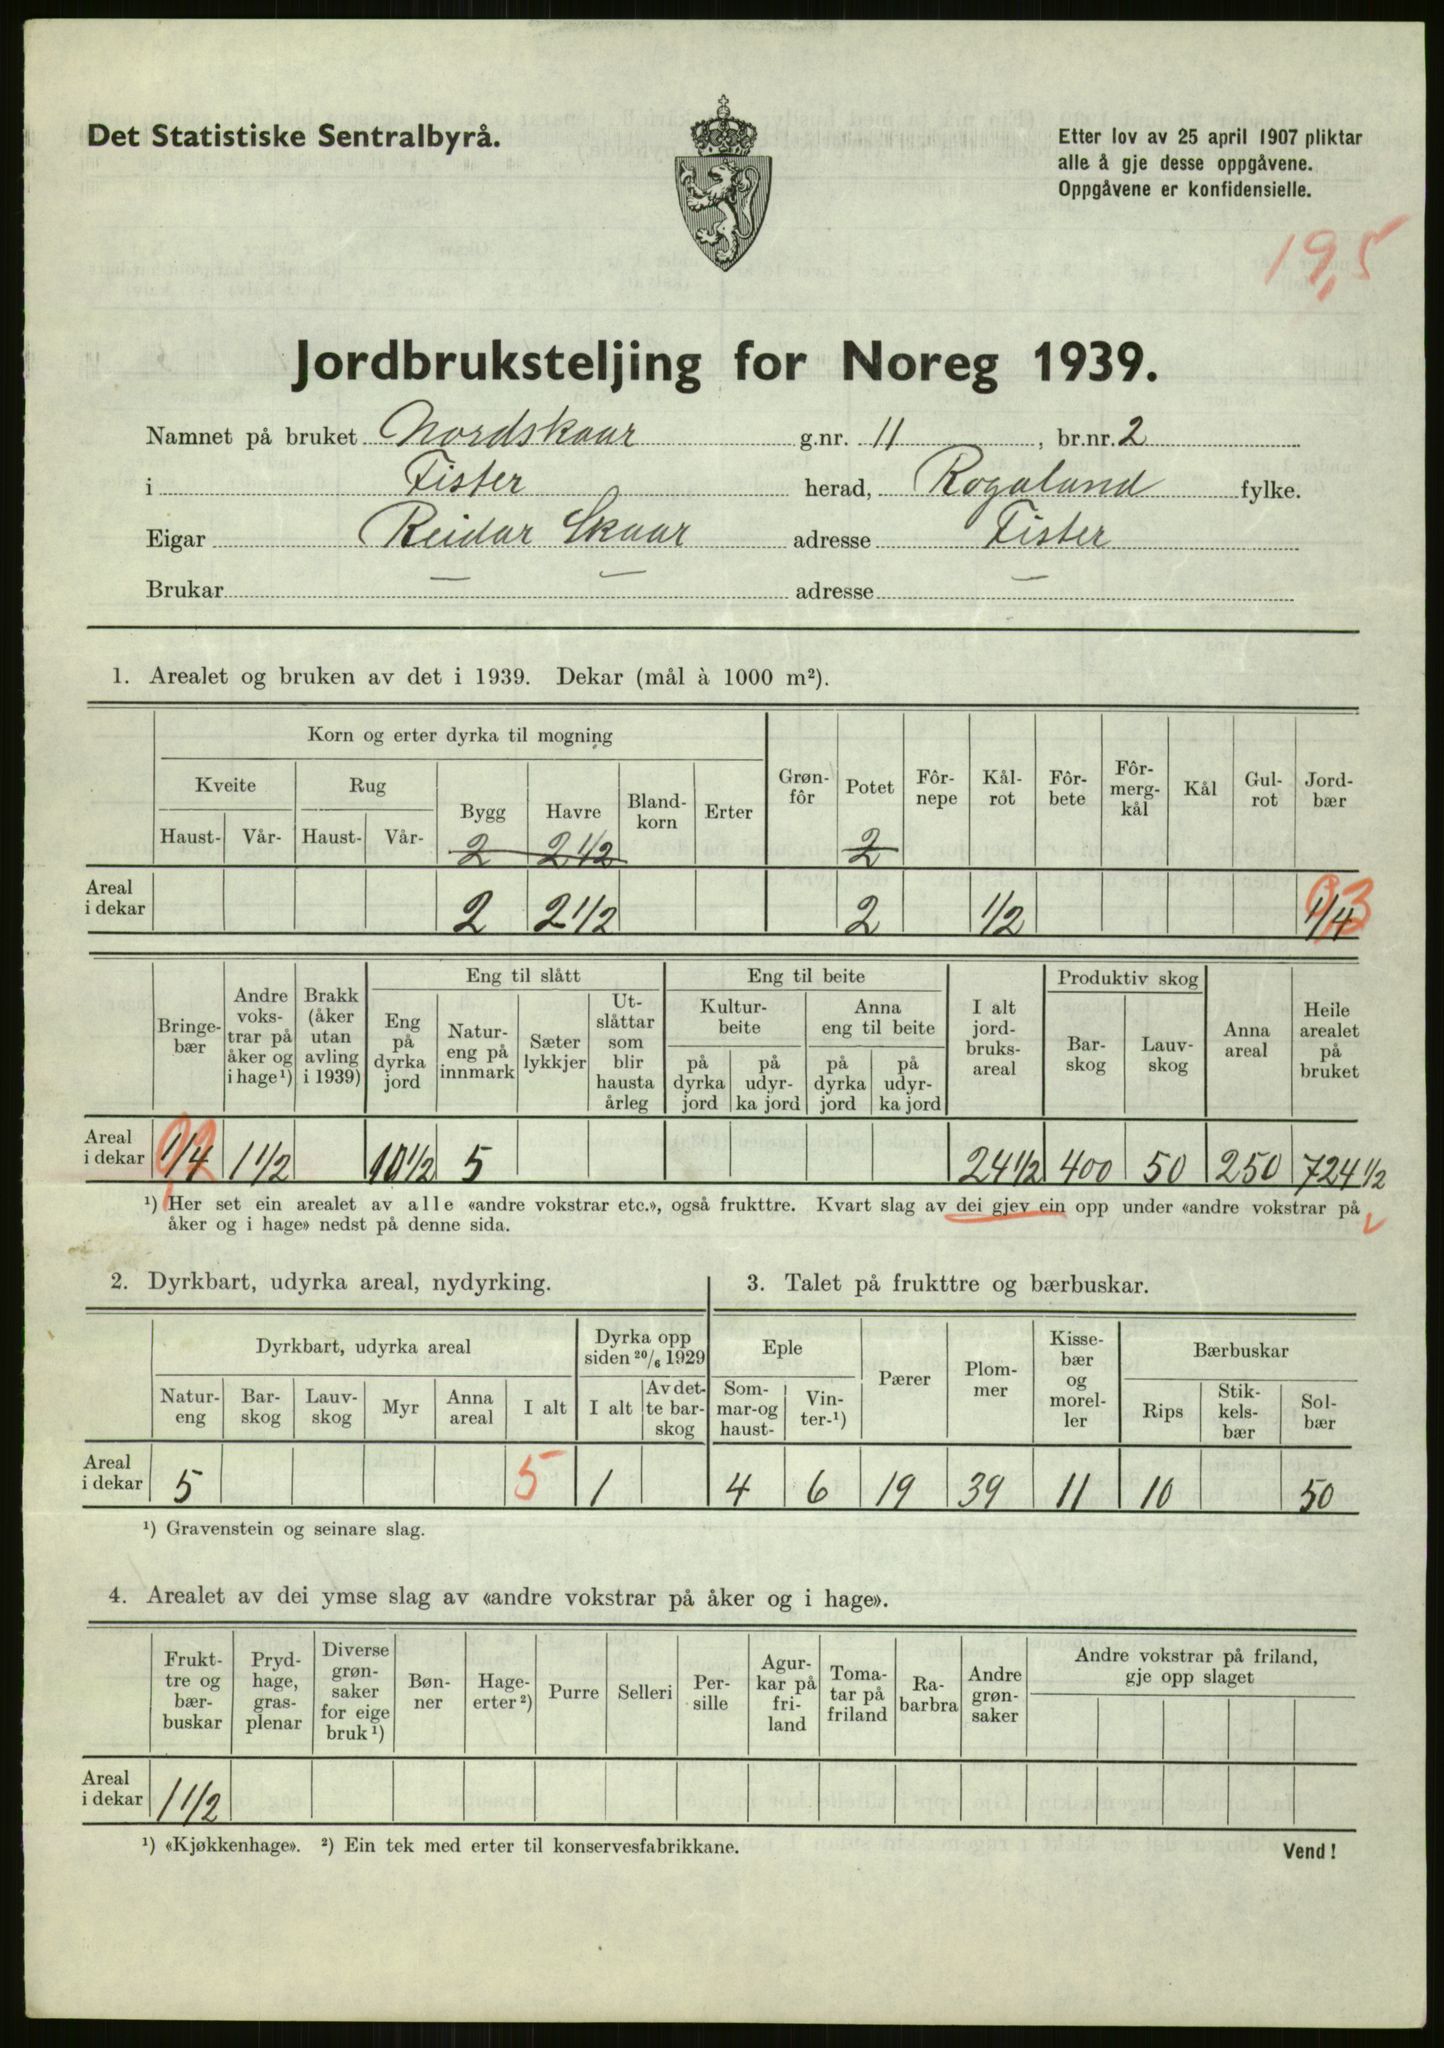 Det Statistiske Sentralbyrå.
Etter lov av 25 april 1907 pliktar
alle å gje desse oppgåvene.
Oppgåvene er konfidensielle.
19,5
Jordbruksteljing for Noreg 1939.
Namnet på bruket Nordskaar g.nr. 11, br.nr. 2
i Fister herad, Rogaland fylke.
Eigar Reidar Skaar adresse Fister
Brukar — — adresse —
1. Arealet og bruken av det i 1939. Dekar (mål à 1000 m²).
Korn og erter dyrka til mogning
Kveite Rug Bygg Havre Bland-korn Erter Grøn-fôr Potet Fôr-nepe Kål-rot Fôr-bete Fôr-merg-kål Kål Gul-rot Jord-bær
Haust- Vår- Haust- Vår-
2 2 1/2 2
Areal i dekar 2 2 1/2 2 1/2 1/4 0,3
Eng til slått Eng til beite Produktiv skog
Kultur-beite Anna eng til beite
Bringe-bær Andre voks-trar på åker og i hage¹) Brakk (åker utan avling i 1939) Eng på dyrka jord Natur-eng på innmark Sæter lykkjer Ut-slåttar som blir hausta årleg på dyrka jord på udyr-ka jord på dyrka jord på udyr-ka jord I alt jord-bruks-areal Bar-skog Lauv-skog Anna areal Heile arealet på bruket
Areal i dekar 1/4 0,2 1 1/2 10 1/2 5 24 1/2 400 50 250 724 1/2
¹) Her set ein arealet av alle «andre vokstrar etc.», også frukttre. Kvart slag av dei gjev ein opp under «andre vokstrar på
åker og i hage» nedst på denne sida.
2. Dyrkbart, udyrka areal, nydyrking.
Dyrkbart, udyrka areal Dyrka opp siden 20/6 1929
Natur-eng Bar-skog Lauv-skog Myr Anna areal I alt I alt Av det-te bar-skog
Areal i dekar 5 5 1
3. Talet på frukttre og bærbuskar.
Eple Pærer Plom-mer Kisse-bær og morel-ler Bærbuskar
Som-mar-og haust- Vin-ter-¹) Rips Stik-kels-bær Sol-bær
4 6 19 39 11 10 50
¹) Gravenstein og seinare slag.
4. Arealet av dei ymse slag av «andre vokstrar på åker og i hage».
Frukt-tre og bær-buskar Pryd-hage, gras-plenar Diverse grøn-saker for eige bruk¹) Bøn-ner Hage-erter²) Purre Selleri Per-sille Agur-kar på fri-land Toma-tar på friland Ra-barbra Andre grøn-saker Andre vokstrar på friland, gje opp slaget
Areal i dekar 1 1/2
¹) «Kjøkkenhage». ²) Ein tek med erter til konservesfabrikkane.
Vend!